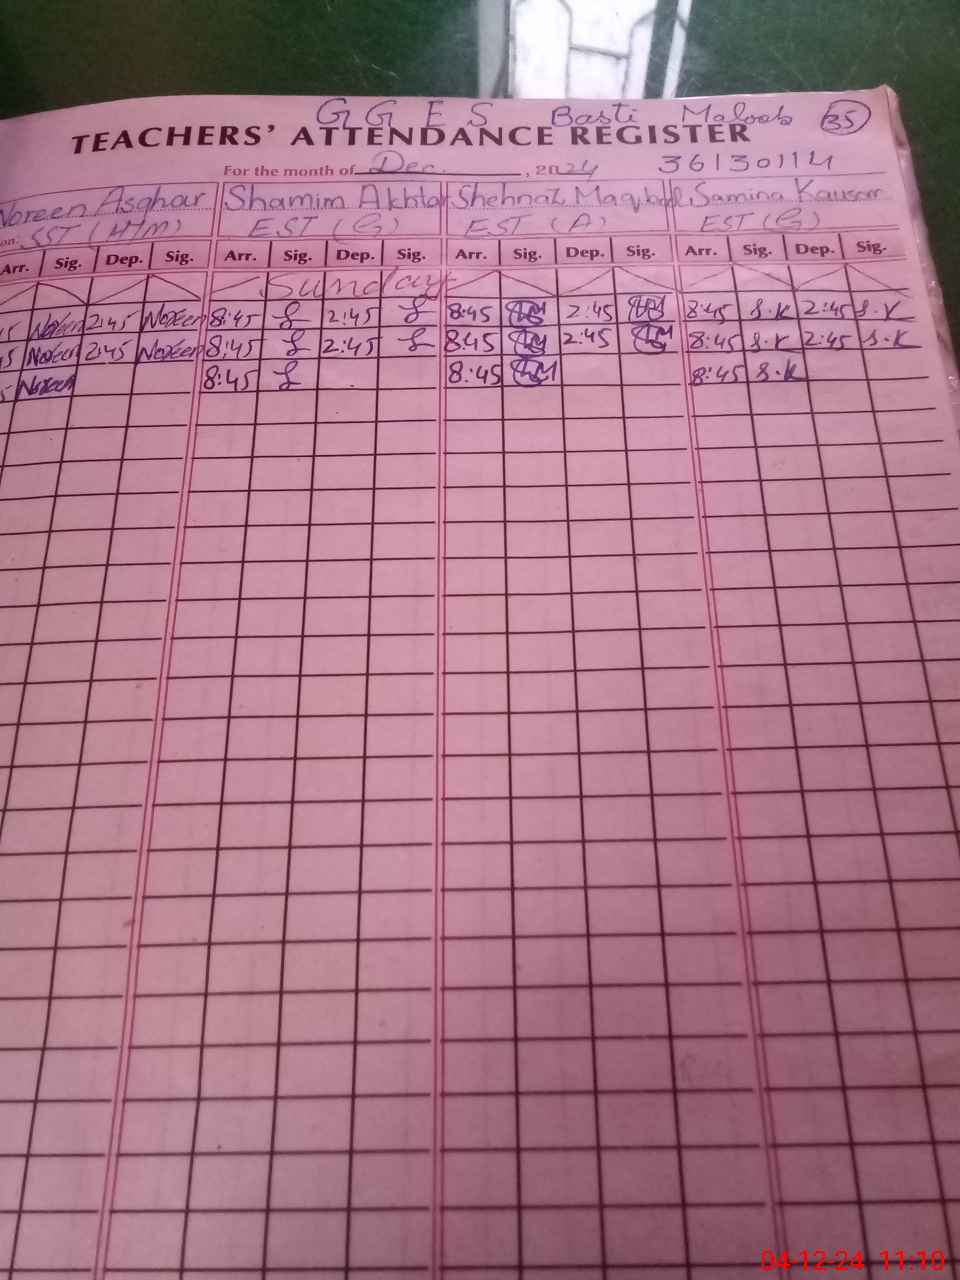 G G E S Basti Maloob 35
TEACHERS' ATTENDANCE REGISTER
For the month of Dec. , 2024 36130114
Noreen Asghar Shamim Akhtar Shehnaz Maqbool Samina Kausar
on. SST (H/M) EST (G) EST (A) EST (G)
Arr. Sig. Dep. Sig. Arr. Sig. Dep. Sig. Arr. Sig. Dep. Sig. Arr. Sig. Dep. Sig.
Sunday
45 Noreen 2:45 Noreen 8:45 2:45 8:45 2:45 8:45 S.K 2:45 S.K
45 Noreen 2:45 Noreen 8:45 2:45 8:45 2:45 8:45 S.K 2:45 S.K
5 Noreen 8:45 8:45 8:45 S.K
04-12-24 11:10